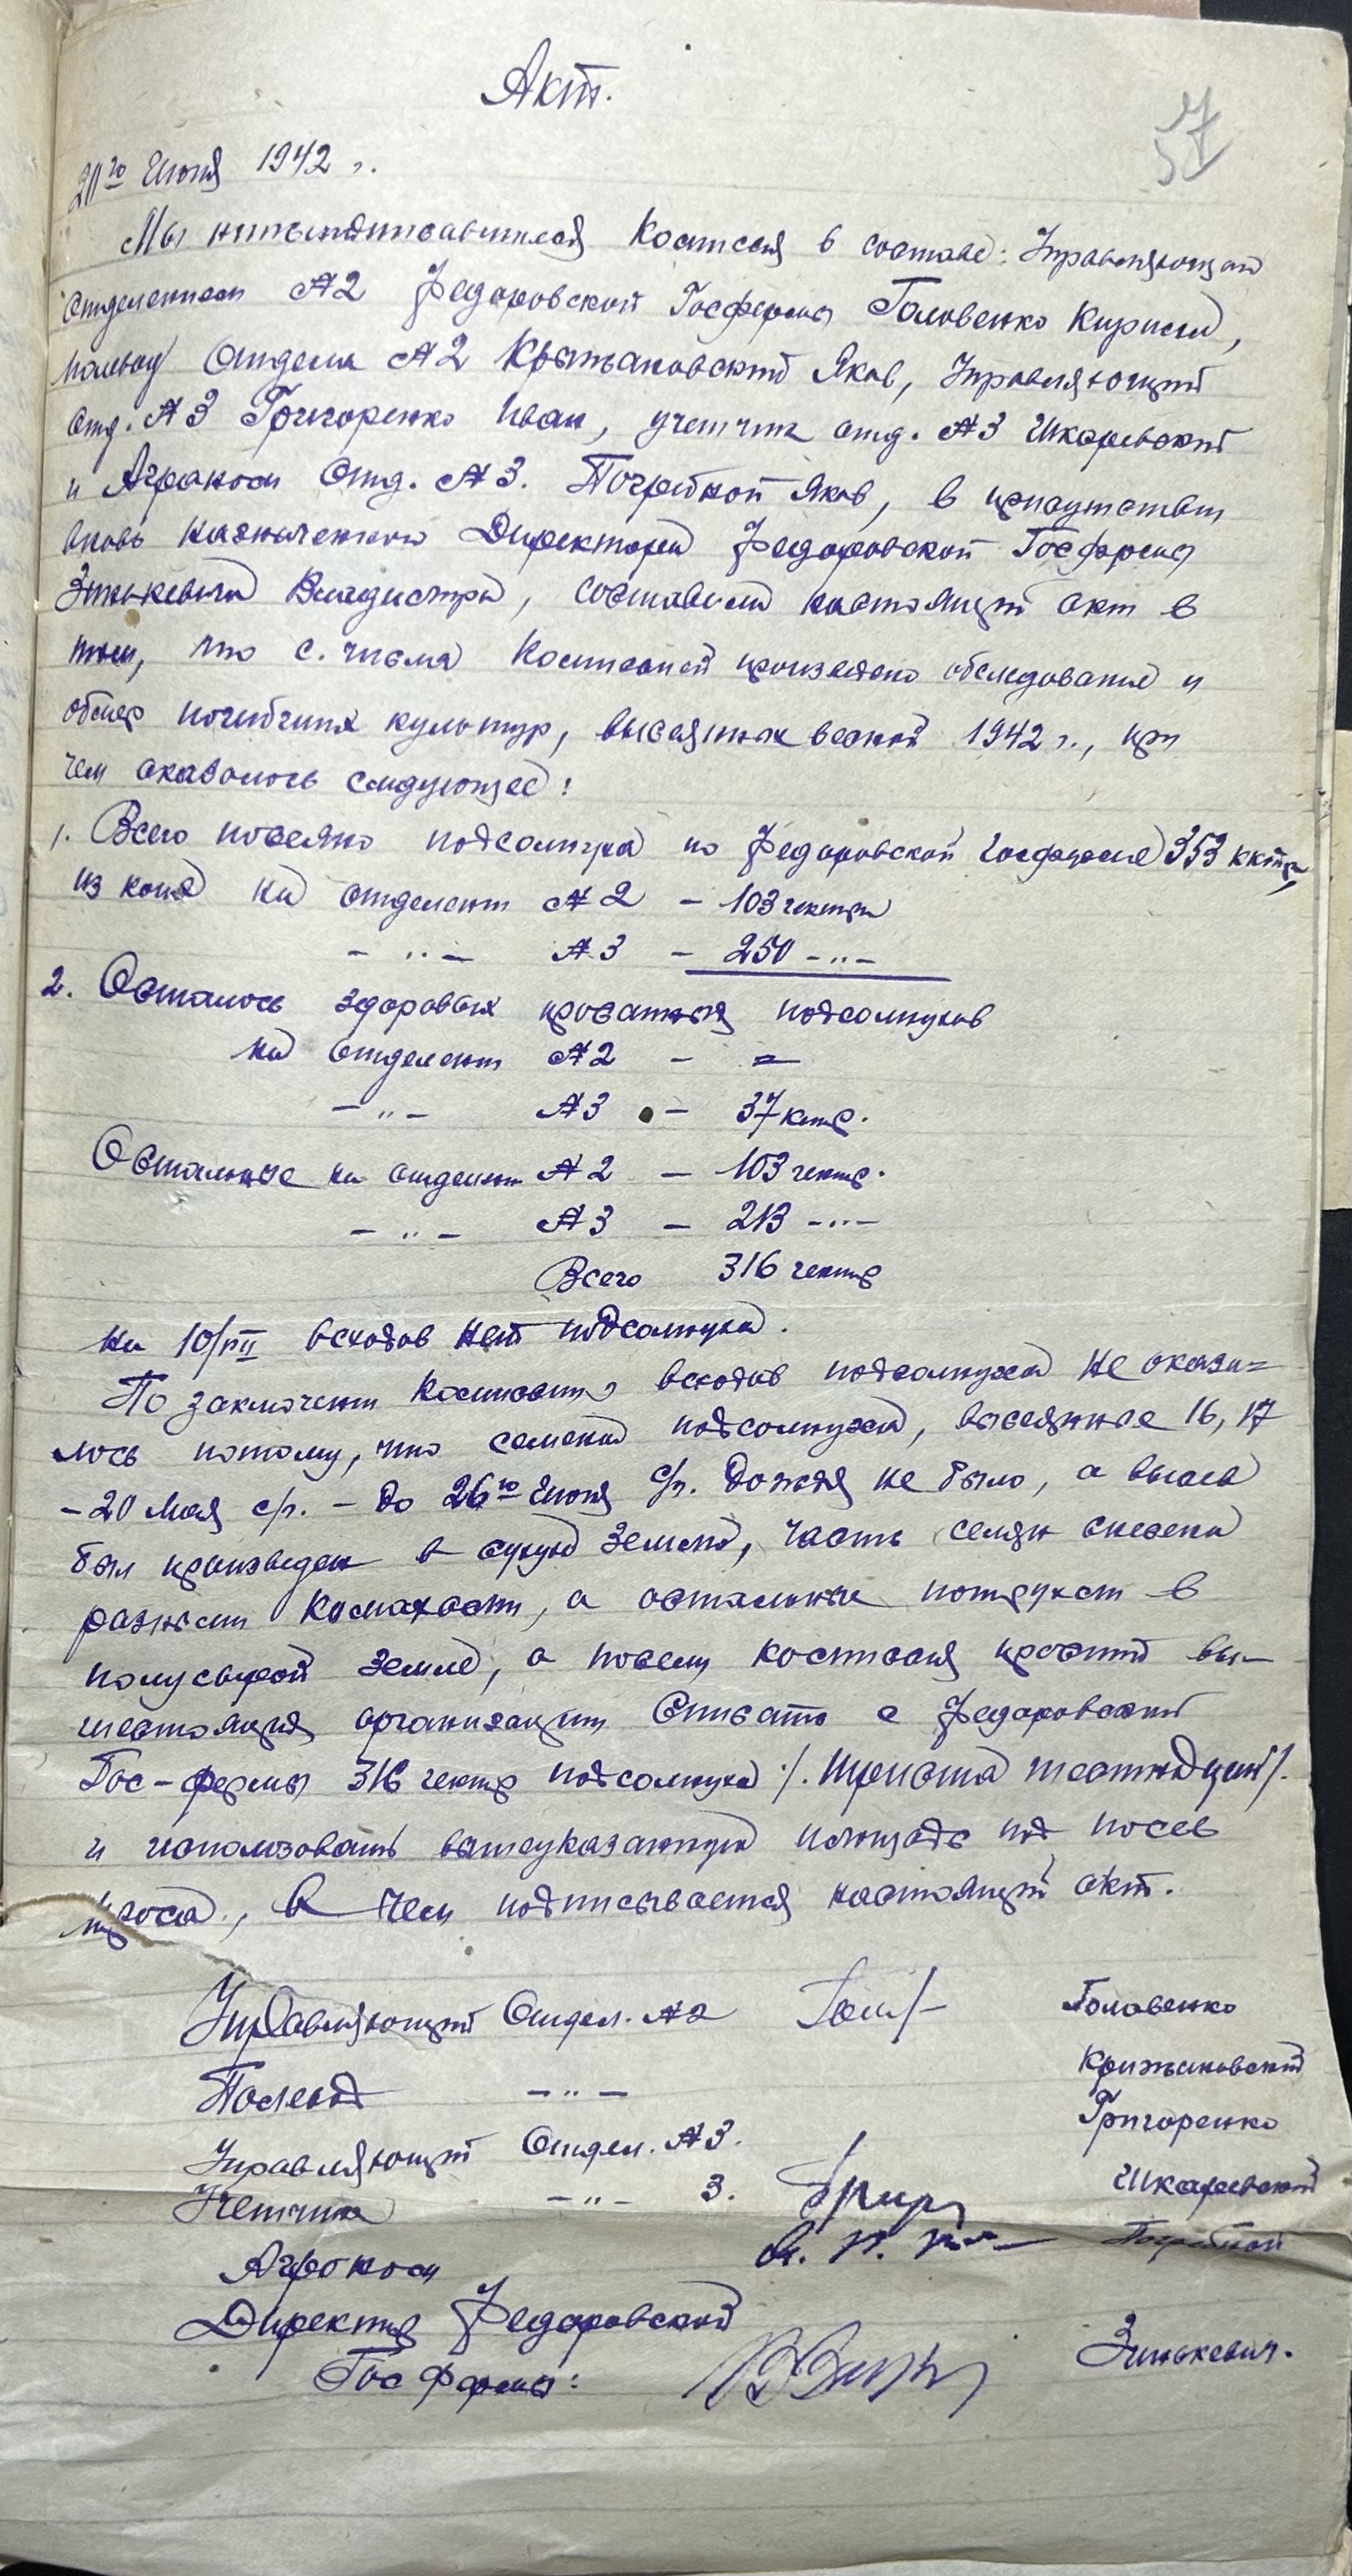 Акт.
57
20го Июня 1942 г.
Мы нижеподписавшиеся Комиссия в составе: Управляющий
отделением №2 Федоровской Госфермы Головенко Кирилл,
полевод Отдела №2 Крыжановский Яков, Управляющий
отд. №3 Григоренко Иван, учетчик отд. №3 Шкаревский
и Агроном Отд. №3. Погребной Яков, в присутствии
вновь назначенного Директора Федоровской Госфермы
Зинькевича Владимира, составили настоящий акт в
том, что с. числа Комиссией произведено обследование и
обмер погибших культур, высеянных весной 1942 г., при
чем оказалось следующее:
1. Всего посеяно подсолнуха по Федоровской Госферме 353 гкт
из коих на отделении №2 - 103 гектр
- " - №3 - 250 - " -
2. Осталось здоровых подсолнухов
на отделении №2 - =
- " - №3 - 37 гктр.
Остальные на отделении №2 - 103 гектр.
- " - №3 - 213 - " -
Всего 316 гектр
на 10/VII всходов нет подсолнуха.
По заключении Комиссии, всходов подсолнуха не оказа=
лось потому, что семена подсолнуха, высеянные 16, 17
- 20 Мая с/г. - до 26го Июня с/г. дождя не было, а высев
был произведен в сухую землю, часть семян
разными, а остальные в
полусырой земле, а посему комиссия просит вы-
шестоящия организации списать с Федоровской
Гос-фермы 316 гектр подсолнуха /. Триста шестнадцать/.
и использовать вышеуказанную площадь под посев
проса, В чем подписывается настоящий акт.
Управляющий Отдел. №2 Головенко
Полевод - " - Крижановский
Управляющий Отдел. №3. Григоренко
Учетчик - " - 3. Шкаревский
Агроном Погребной
Директор Федоровской
Госфермы: Зинькевич.